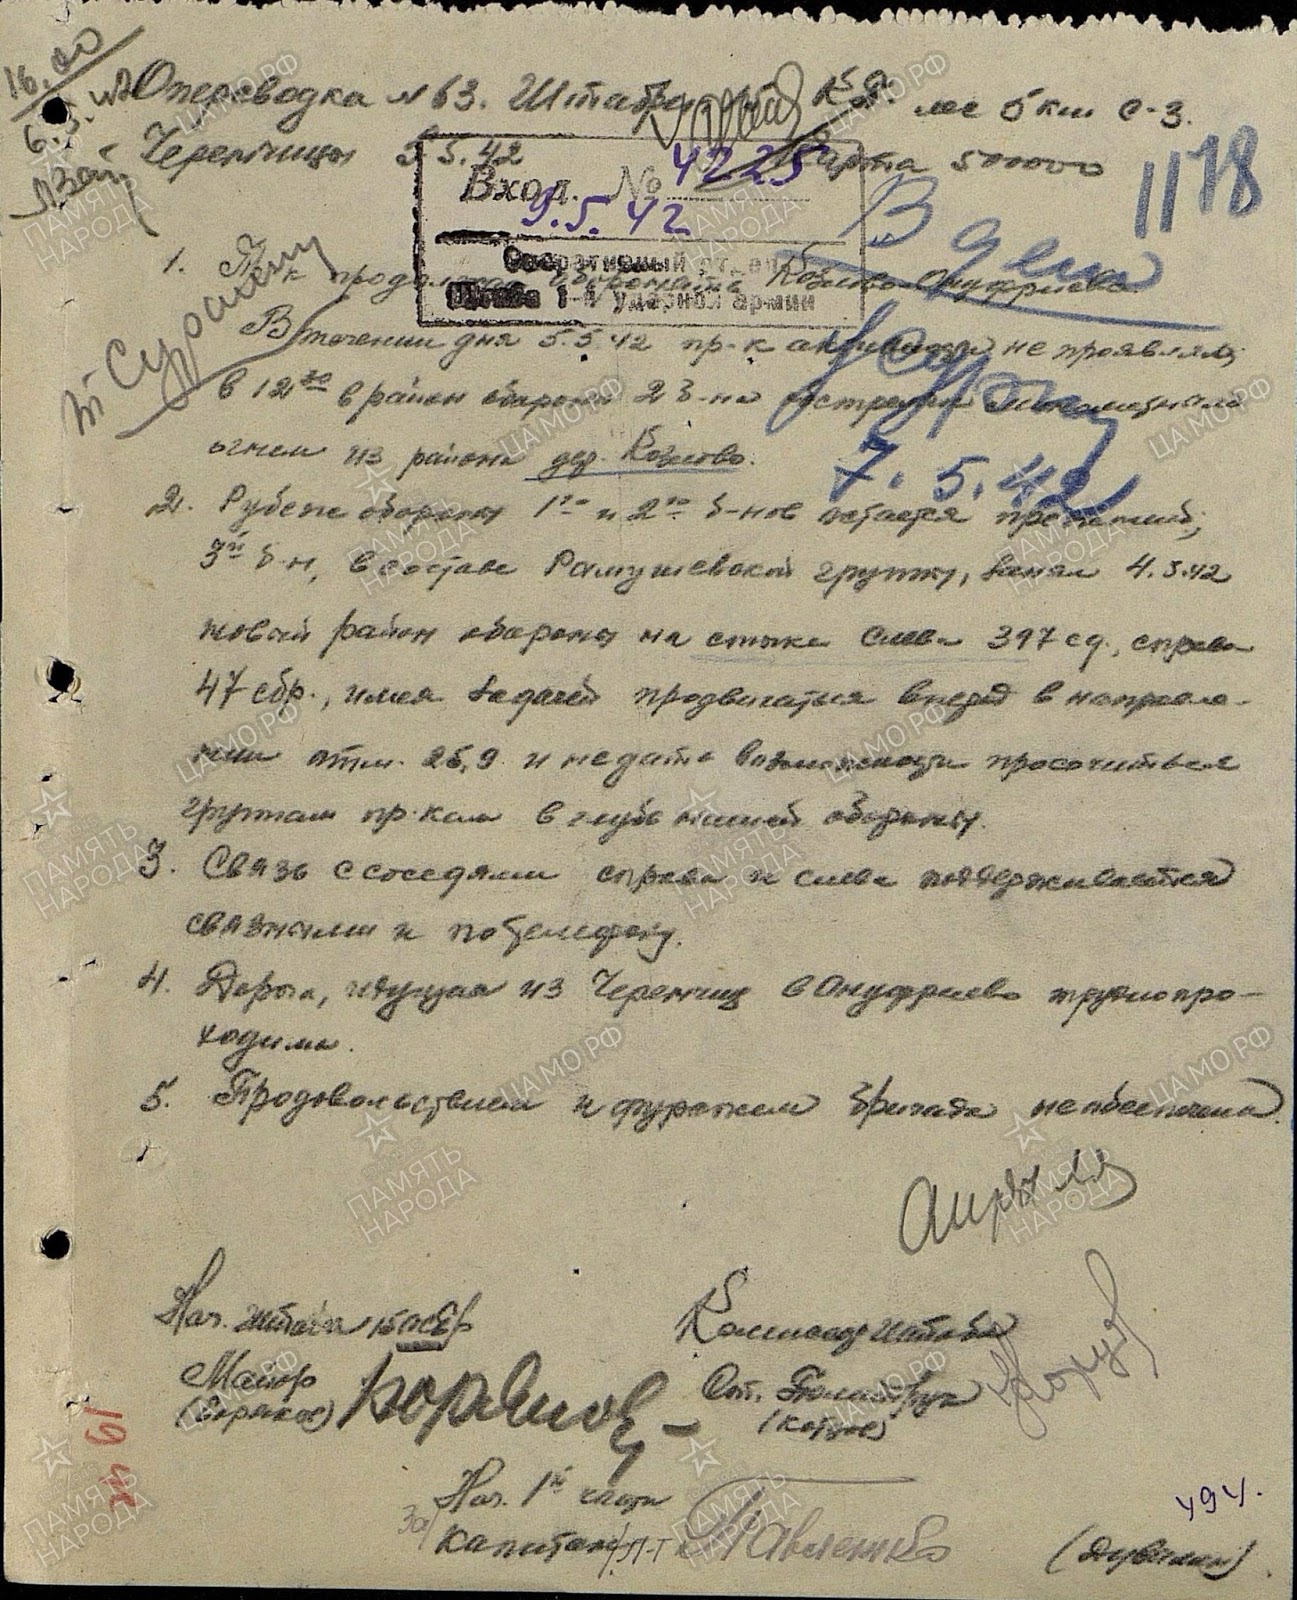 16.00
6.5.42
Оперсводка №63. Штабр КП. лес 5 км с-з.
Черенчицы 5.5.42 Карта 50000
1178
Вход. № 4225
9.5.42
Оперативный отдел
Штаба 1-й ударной армии
В дело
7.5.42
1. Пр-к продолжает оборонять Козлово Онуфриево.
В течении дня 5.5.42 пр-к активности не проявлял,
в 12 30 в район обороны 2 б-на обстрелял минометным
огнем из района дер. Козлово.
2. Рубеж обороны 1го и 2го б-нов остается прежний,
3й б-н, в составе Рамушевской группы, занял 4.5.42
новый район обороны на стыке слева 397 сд., справа
47 сбр., имея задачей продвигаться вперед в направле-
нии отм. 26,9 и не дать возможности просочиться
группам пр-ка в глубь нашей обороны.
3. Связь с соседями справа и слева поддерживается
связными и по телефону.
4. Дорога, идущая из Черенчиц в Онуфриево труднопро-
ходима.
5. Продовольствием и фуражем бригада не обеспечена.
Нач. штаба осбр
Майор
Комиссар штаба
Бат. Комиссар
Нач. 1й части
За/ капитан
(Дувакин)
494.
61